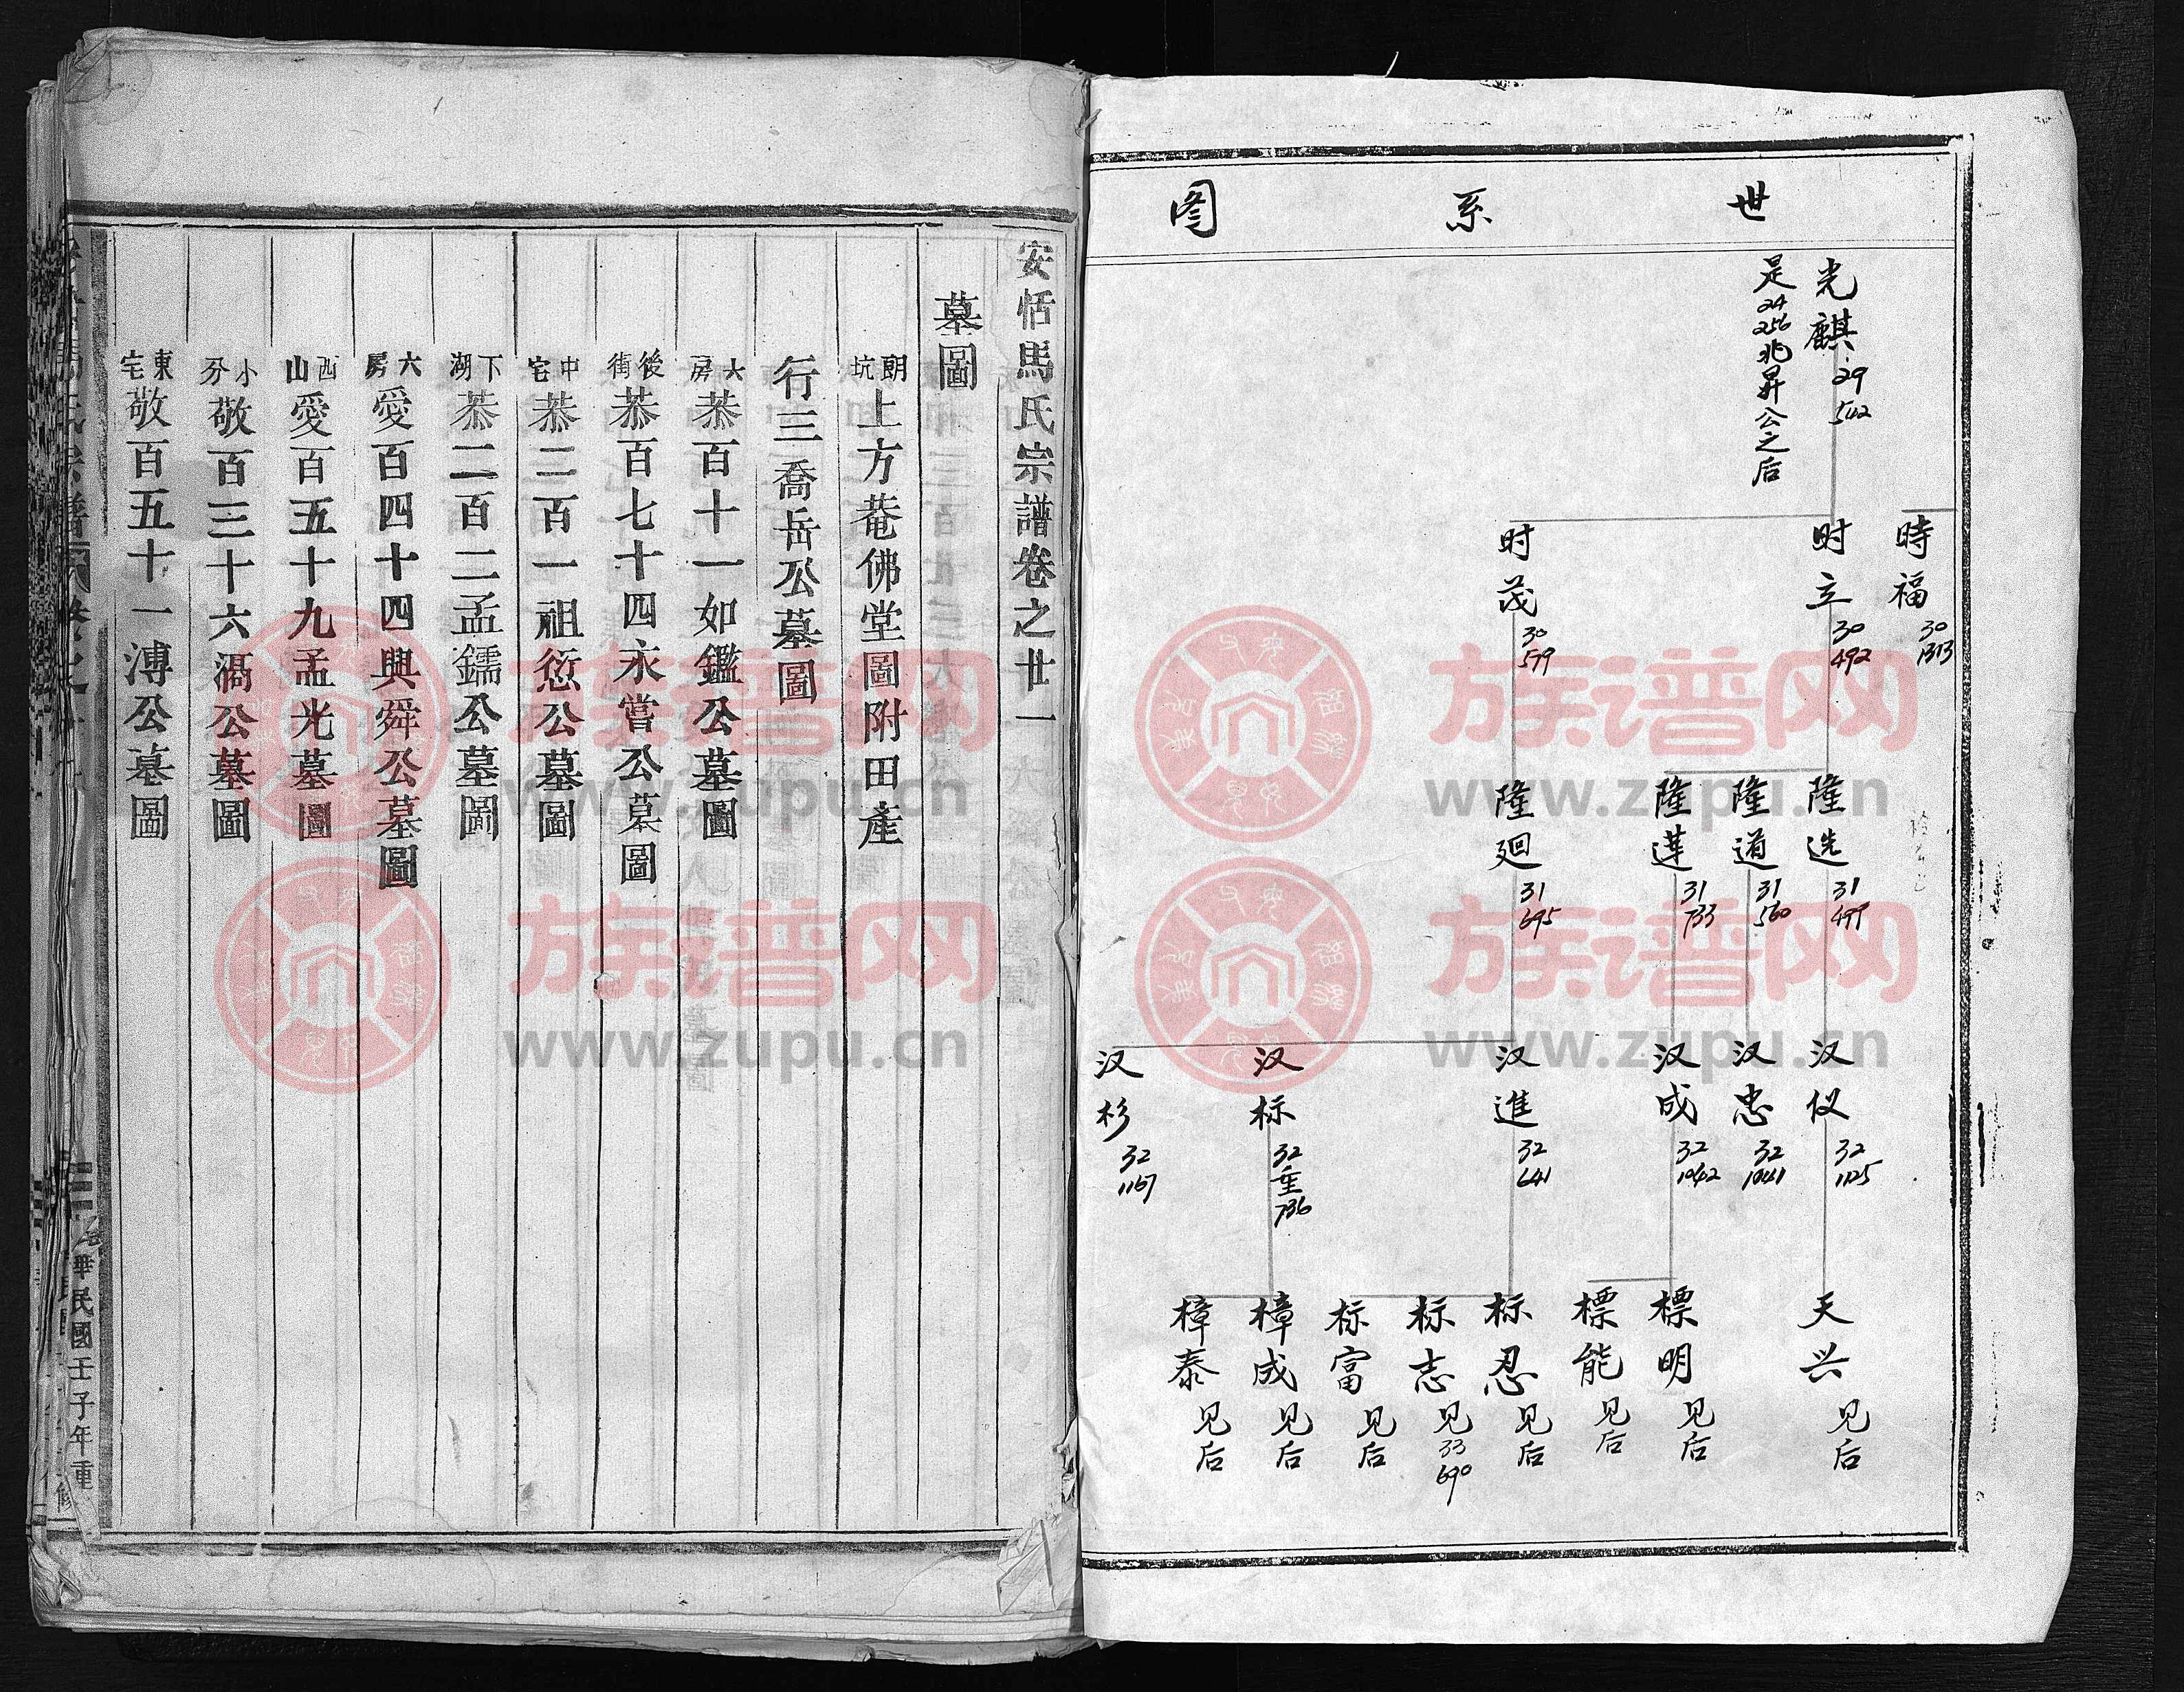 世系图
光麒 29 542
是24 256兆昇公之后
時福 30 1313
时立 30 492
时茂 30 599
隆选 31 499
隆道 31 560
隆莲 31 733
隆廻 31 695
汉仪 32 1125
汉忠 32 1041
汉成 32 1042
汉進 32 641
汉标 32 重 736
汉杉 32 1167
天兴 见后
標明 见后
標能 见后
标忍 见后
标志 见 33 690
标富 见后
樟成 见后
樟泰 见后
安恬馬氏宗譜卷之廿一
墓圖
朗坑上方菴佛堂圖附田產
行三喬岳公墓圖
六房恭百十一如鑑公墓圖
後街恭百七十四永嘗公墓圖
中宅恭二百一祖愆公墓圖
下湖恭二百二孟鑐公墓圖
六房愛百四十四與舜公墓圖
西山愛百五十九孟光墓圖
小分敬百三十六渦公墓圖
東宅敬百五十一溥公墓圖
華民國壬子年重
族谱网
www.zupu.cn
族谱网
www.zupu.cn
族谱网
www.zupu.cn
族谱网
www.zupu.cn